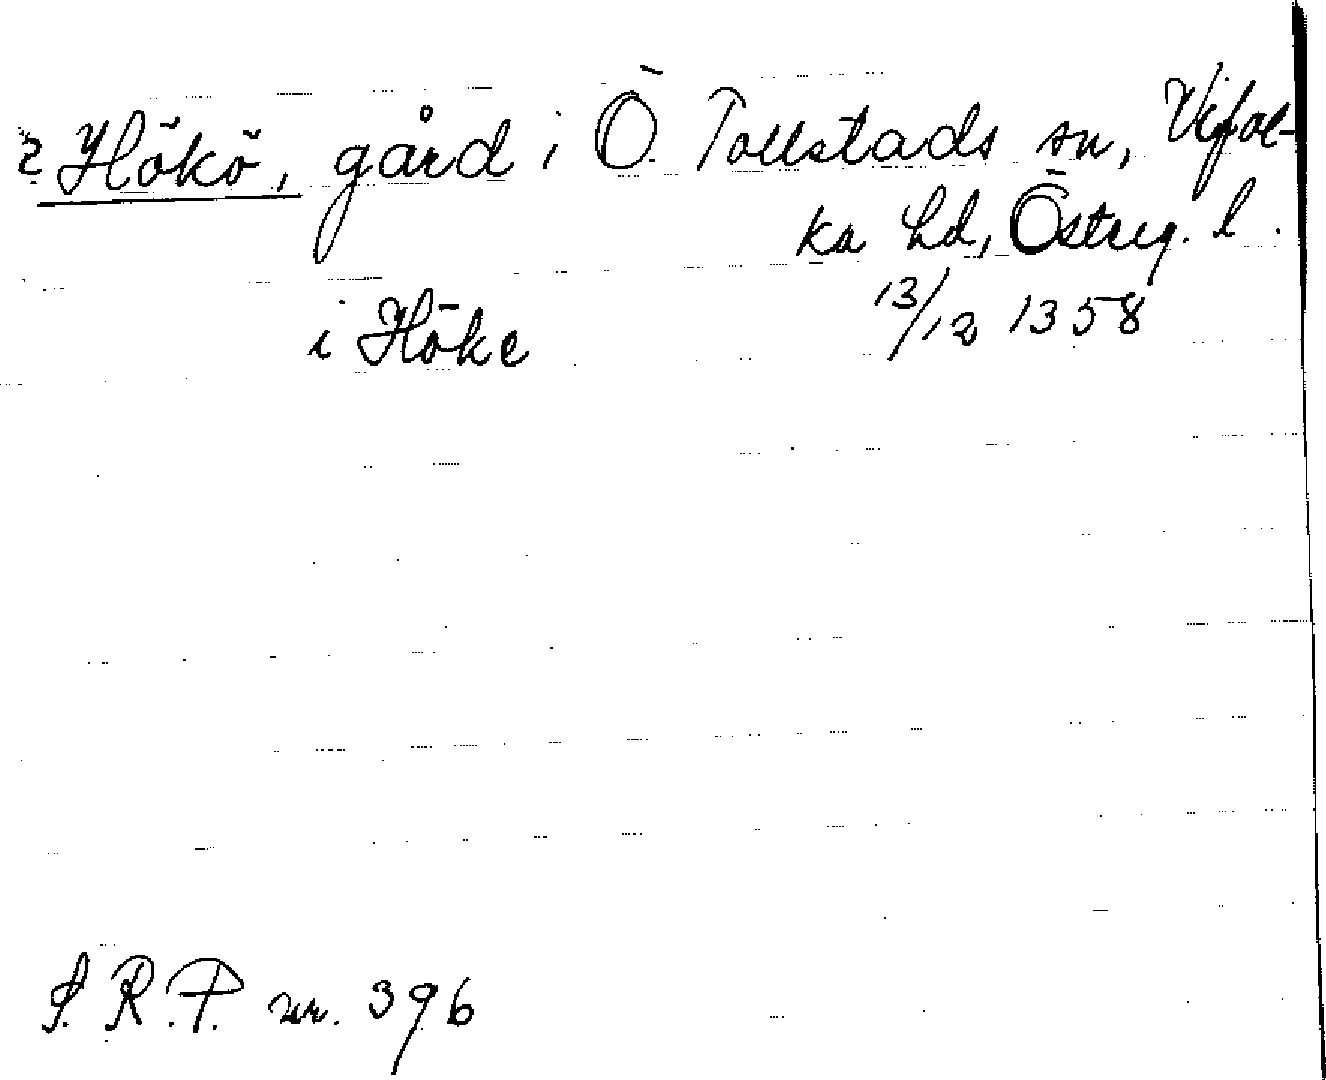 ? Hökö, gård i Ö. Tollstads sn, Vifol-
ka hd, Östrg. l.
i Höke 13/12 1358
S. R. P. nr. 396